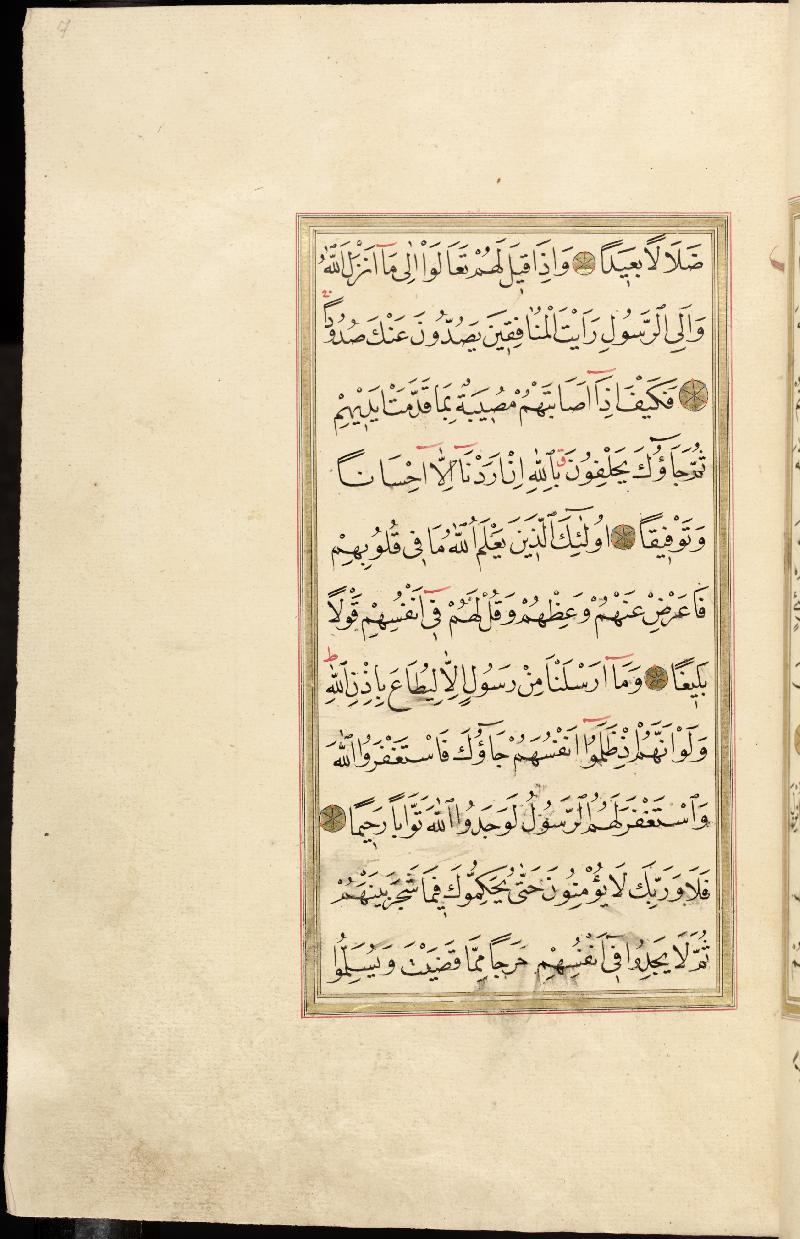 ضَلَالًا بَعِيدًا وَاِذَا قِيلَ لَهُمْ تَعَالَوْا اِلٰى مَآ اَنْزَلَ اللّٰهُ
وَاِلَى الرَّسُولِ رَاَيْتَ الْمُنَافِقِينَ يَصُدُّونَ عَنْكَ صُدُودًا
فَكَيْفَ اِذَآ اَصَابَتْهُمْ مُصِيبَةٌ بِمَا قَدَّمَتْ اَيْدِيهِمْ
ثُمَّ جَاؤُكَ يَحْلِفُونَ بِاللّٰهِ اِنْ اَرَدْنَآ اِلَّآ اِحْسَانًا
وَتَوْفِيقًا اُولٰٓئِكَ الَّذِينَ يَعْلَمُ اللّٰهُ مَا فِى قُلُوبِهِمْ
فَاَعْرِضْ عَنْهُمْ وَعِظْهُمْ وَقُلْ لَهُمْ فِىٓ اَنْفُسِهِمْ قَوْلًا
بَلِيغًا وَمَآ اَرْسَلْنَا مِنْ رَسُولٍ اِلَّا لِيُطَاعَ بِاِذْنِ اللّٰهِ ط
وَلَوْ اَنَّهُمْ اِذْ ظَلَمُوٓا اَنْفُسَهُمْ جَاؤُكَ فَاسْتَغْفَرُوا اللّٰهَ
وَاسْتَغْفَرَ لَهُمُ الرَّسُولُ لَوَجَدُوا اللّٰهَ تَوَّابًا رَحِيمًا
فَلَا وَرَبِّكَ لَا يُؤْمِنُونَ حَتّٰى يُحَكِّمُوكَ فِيمَا شَجَرَ بَيْنَهُمْ
ثُمَّ لَا يَجِدُوا فِىٓ اَنْفُسِهِمْ حَرَجًا مِمَّا قَضَيْتَ وَيُسَلِّمُوا